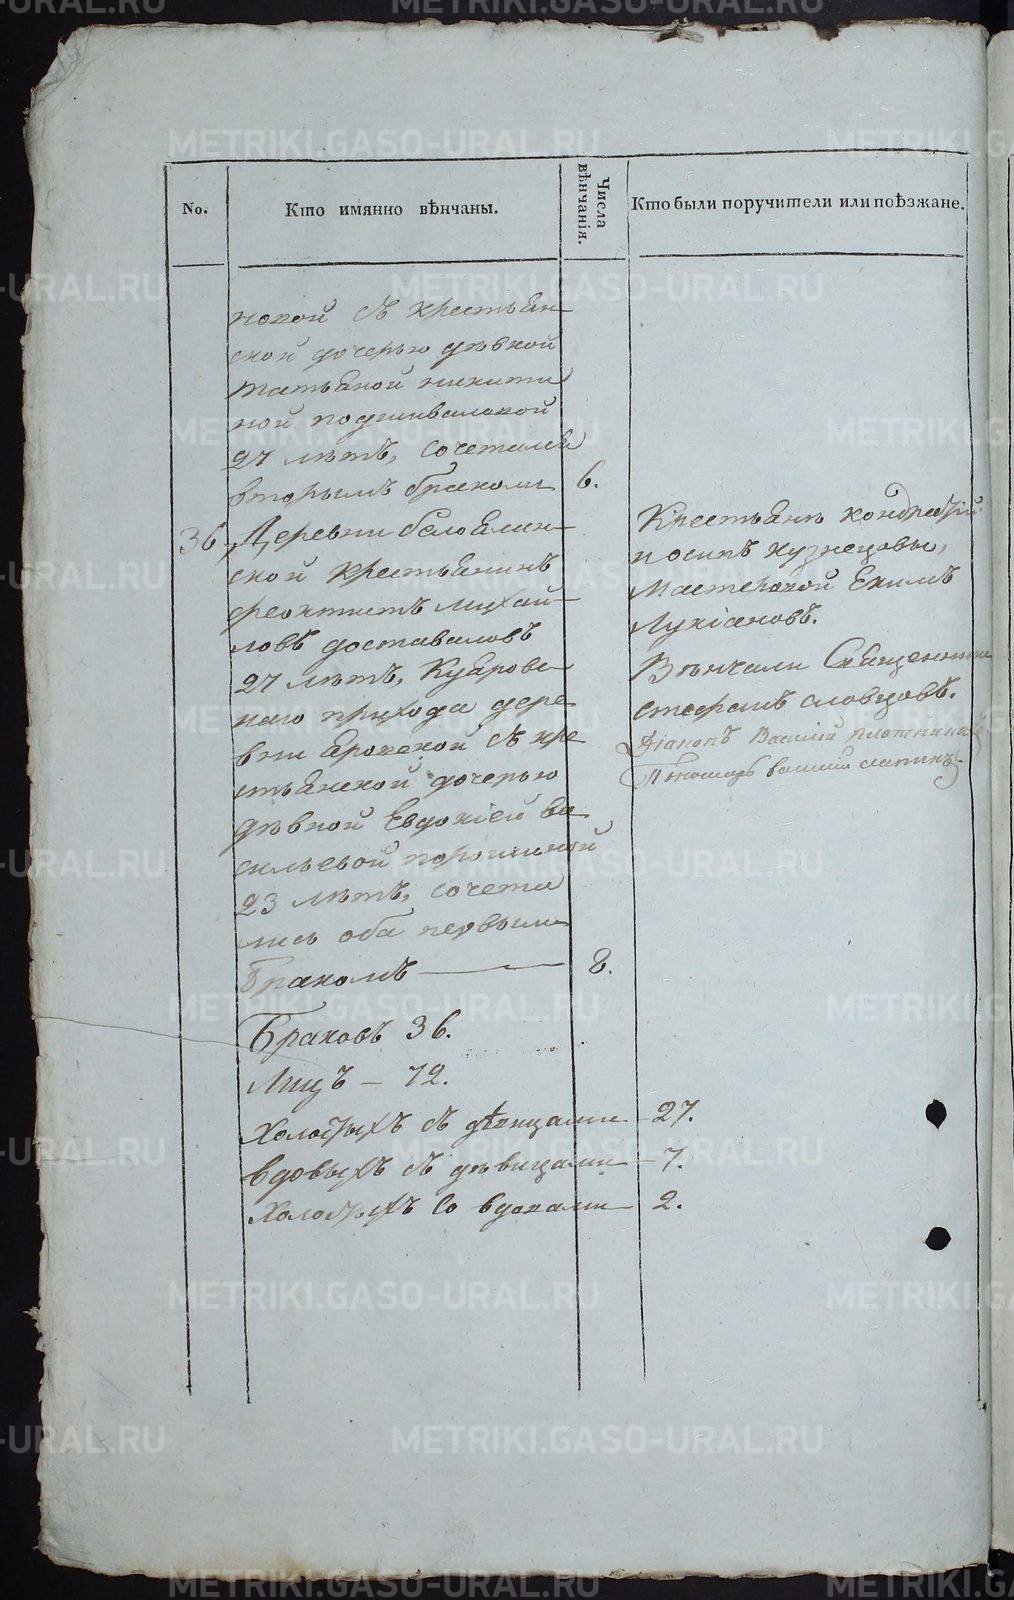 No.
Кто имянно вѣнчаны.
Числа вѣнчанія.
Кто были поручители или поѣзжане.
новой съ крестьян
ской дочерью дѣвкой
татьяной никити
ной подшиваловой
27 лѣтъ, сочетался
вторымъ бракомъ 6.
36 Деревни белоелан
ской крестьянинъ
феоктистъ михай
ловъ доставаловъ
27 лѣтъ, Куяровс
каго прихода дере
вни яровской съ кре
стьянской дочерью
дѣвкой Евдокіей ва
сильевой порошиной
23 лѣтъ, сочета
лись оба первымъ
бракомъ — 8.
Браковъ 36.
Лицъ — 72.
Холостыхъ съ дѣвицами — 27.
вдовыхъ съ дѣвицами — 7.
Холостыхъ со вдовами — 2.
Крестьяне кондратій
и осипъ кузнецовы,
мастеровой Екимъ
Лукіановъ.
Вѣнчали Священникъ
стефанъ словцовъ.
Діаконъ Василій плотниковъ
Пономарь василій
METRIKI.GASO-URAL.RU